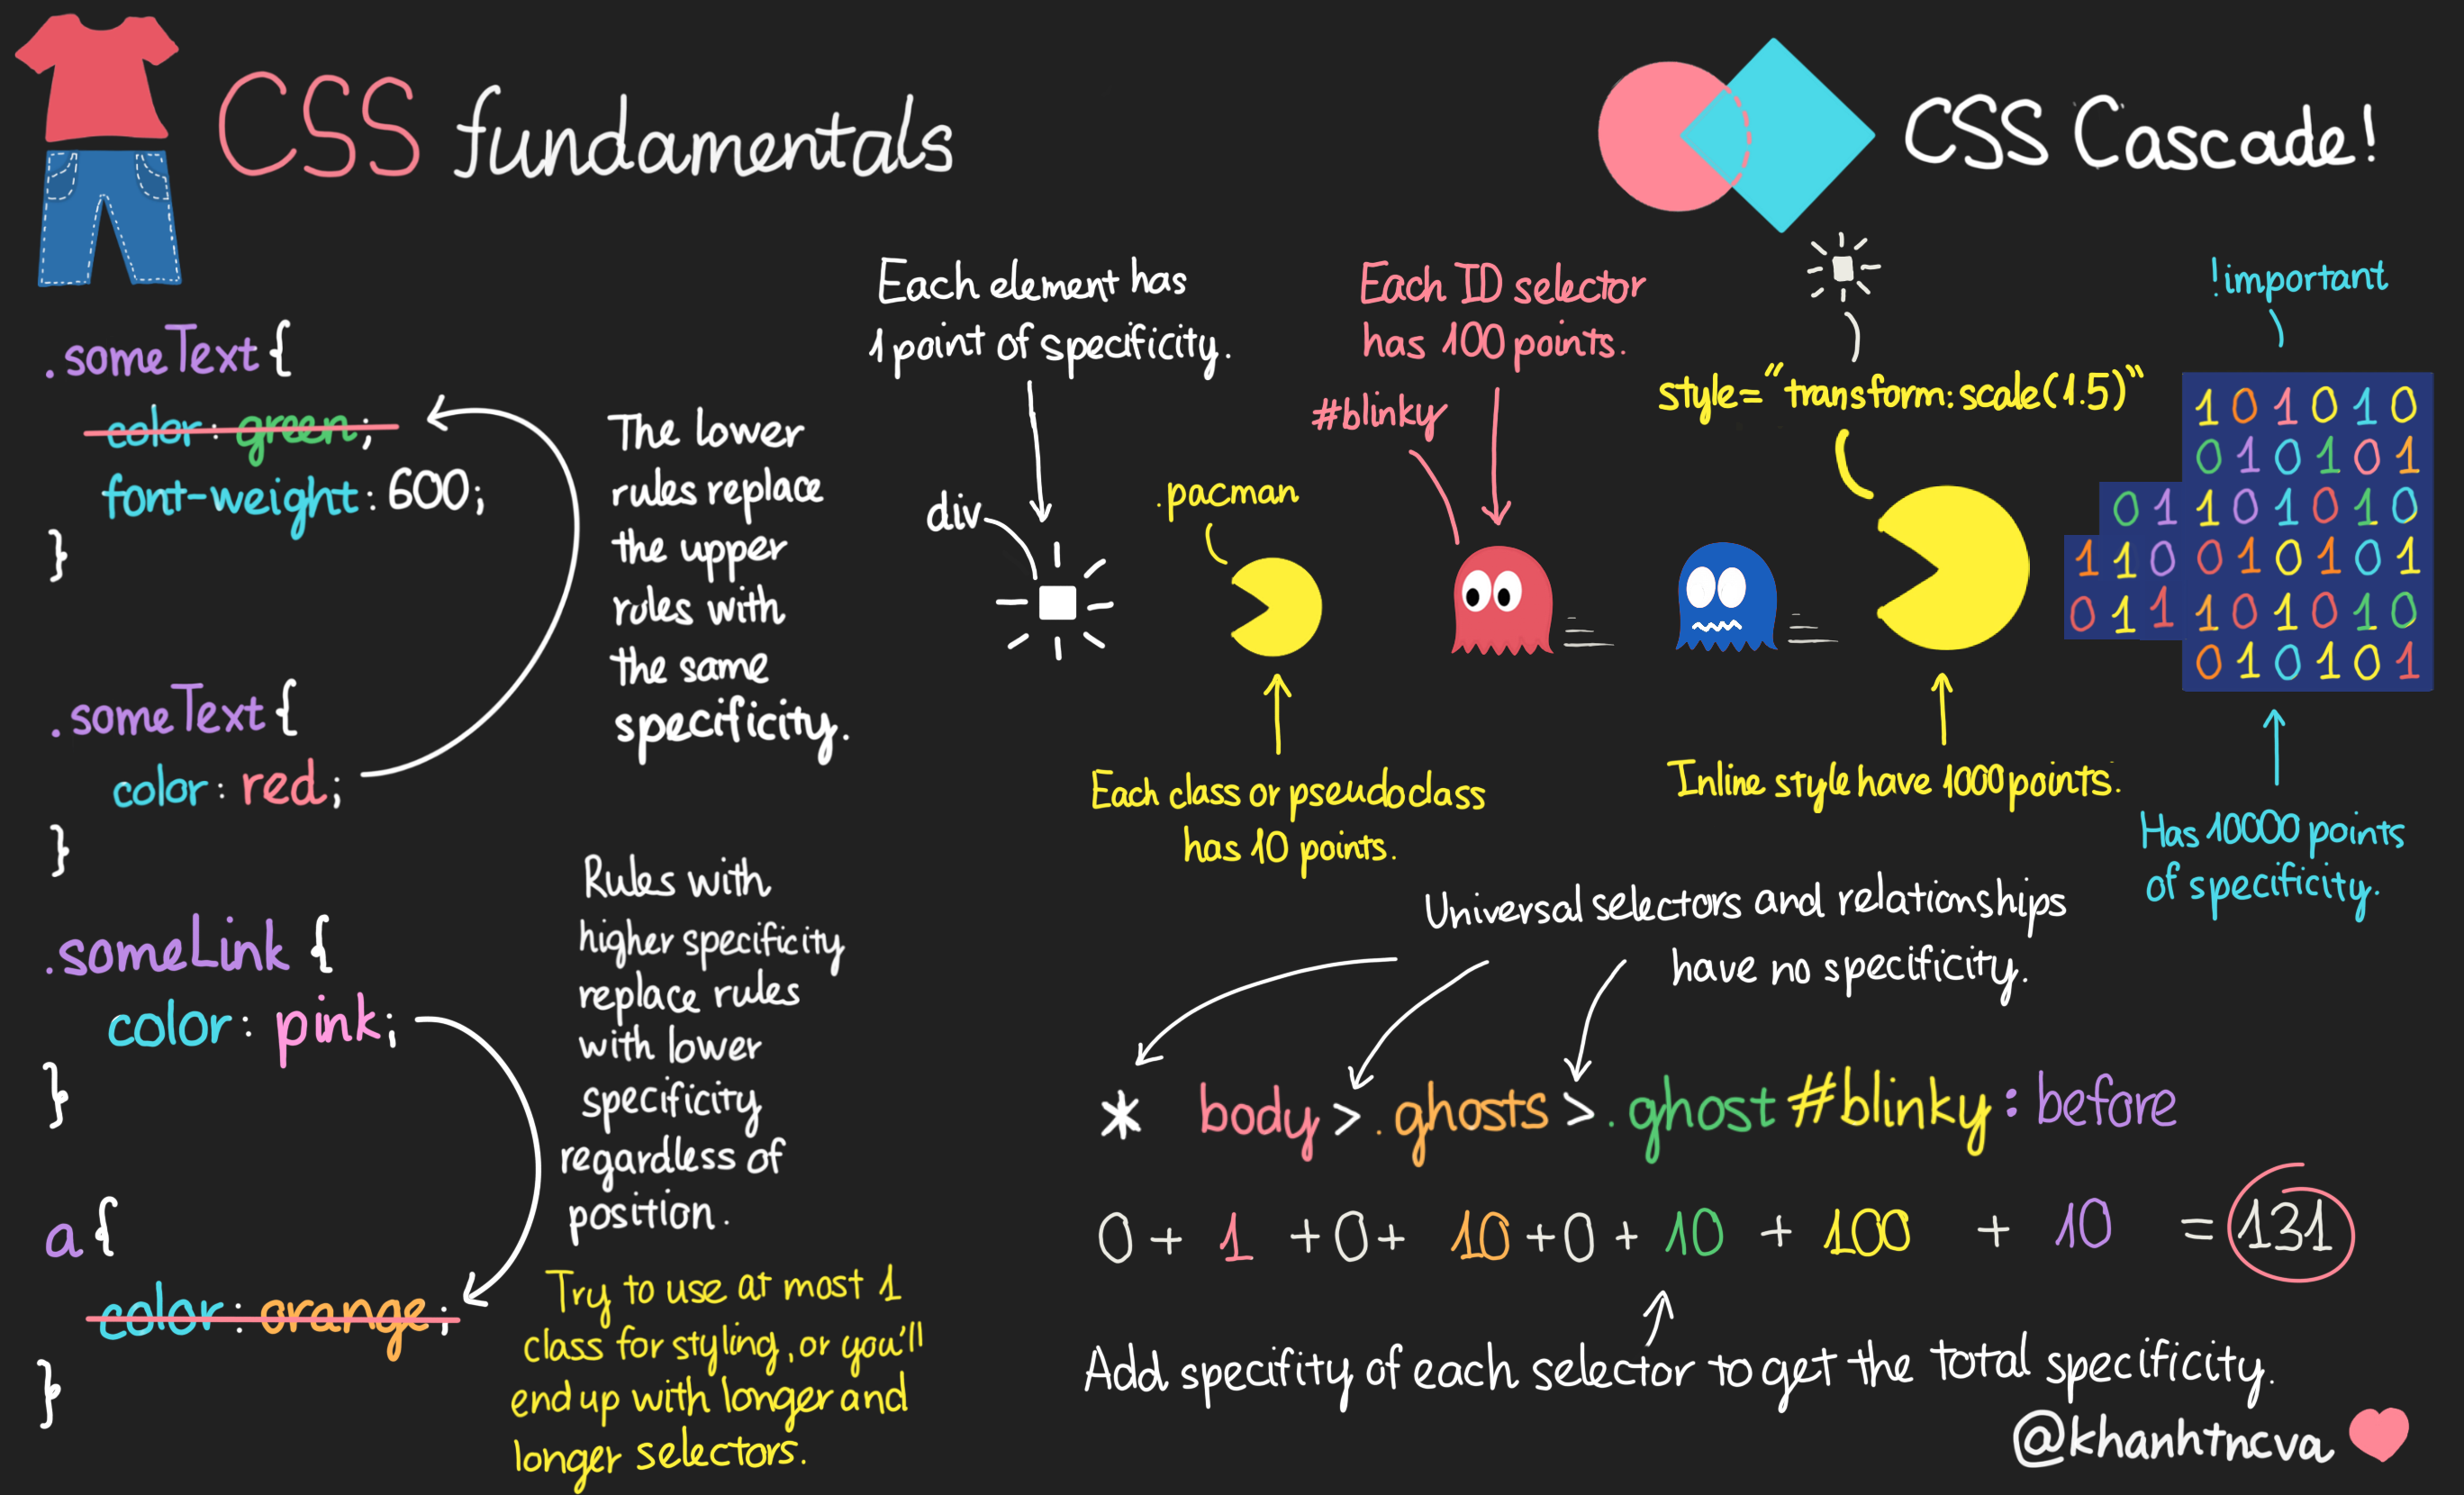 CSS fundamentals
CSS Cascade!
.someText{
color: green;
font-weight: 600;
}
.someText{
color: red;
}
The lower
rules replace
the upper
rules with
the same
specificity.
.someLink {
color: pink;
}
a{
color: orange;
}
Rules with
higher specificity
replace rules
with lower
specificity
regardless of
position.
Try to use at most 1
class for styling, or you'll
end up with longer and
longer selectors.
Each element has
1 point of specificity.
div
.pacman
Each class or pseudoclass
has 10 points.
Each ID selector
has 100 points.
#blinky
style="transform:scale(1.5)"
Inline style have 1000 points.
!important
101010
010101
01101010
110010101
011101010
010101
Has 10000 points
of specificity.
Universal selectors and relationships
have no specificity.
* body > .ghosts > .ghost #blinky :before
0 + 1 + 0 + 10 + 0 + 10 + 100 + 10 = 131
Add specifity of each selector to get the total specificity.
@khanhtncva